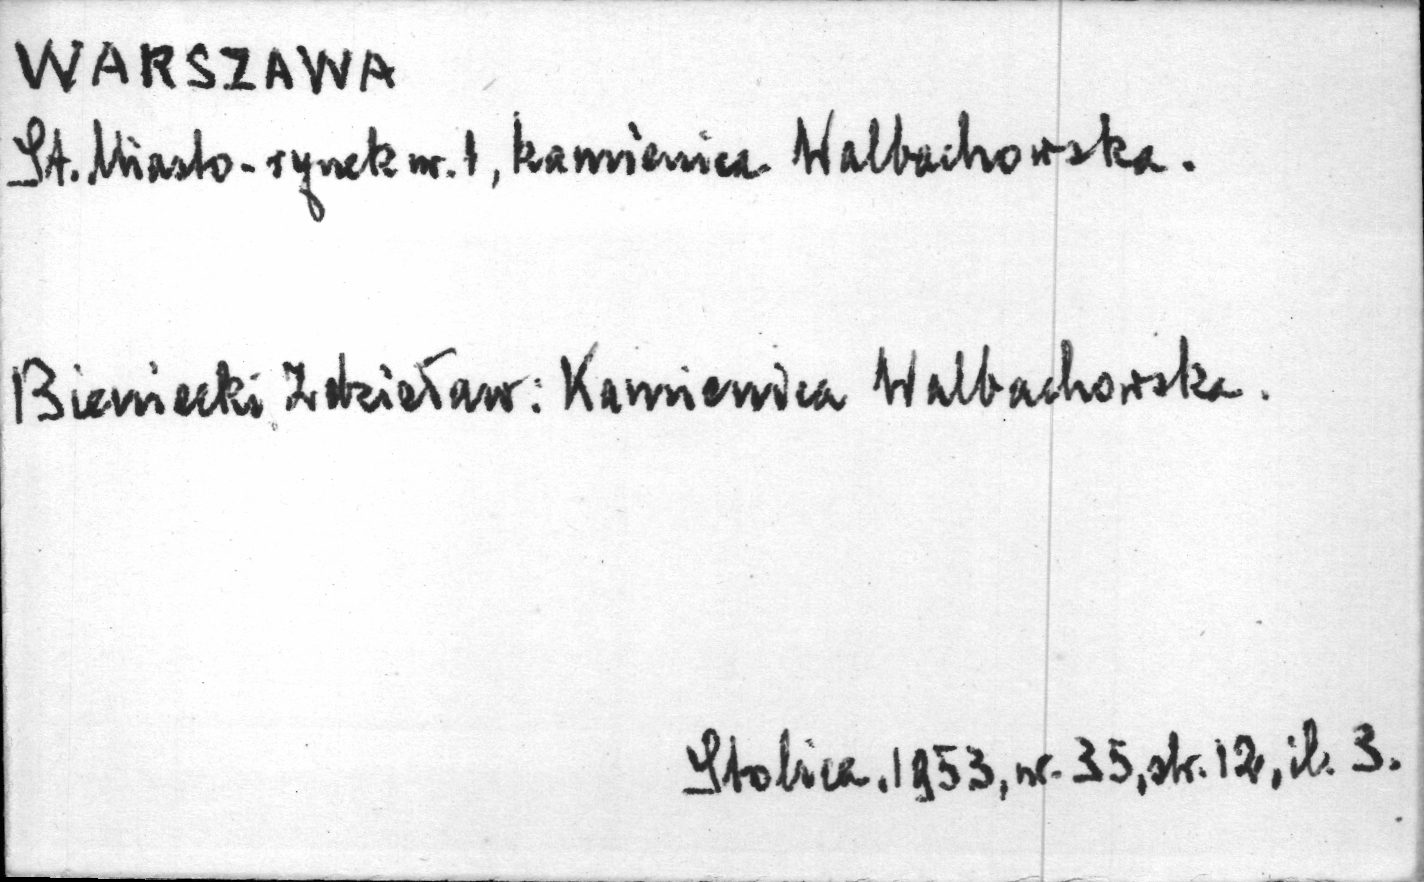 WARSZAWA
St. Miasto - rynek nr. 1, kamienica Walbachowska.
Bieniecki Zdzisław: Kamienica Walbachowska.
Stolica. 1953, nr. 35, str. 12, il. 3.